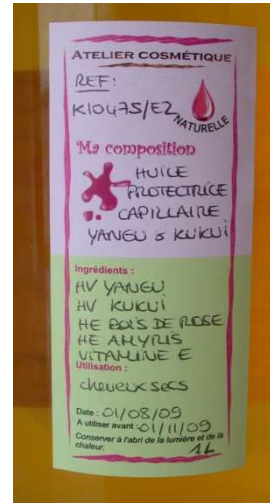 ATELIER COSMÉTIQUE
REF:
K10475/E2
NATURELLE
Ma composition
HUILE
PROTECTRICE
CAPILLAIRE
YANGU & KUKUI
Ingrédients :
HV YANGU
HV KUKUI
HE BOIS DE ROSE
HE AMYRIS
VITAMINE E
Utilisation :
cheveux secs
Date : 01/08/09
A utiliser avant : 01/11/09
Conserver à l'abri de la lumière et de la
chaleur.
1L